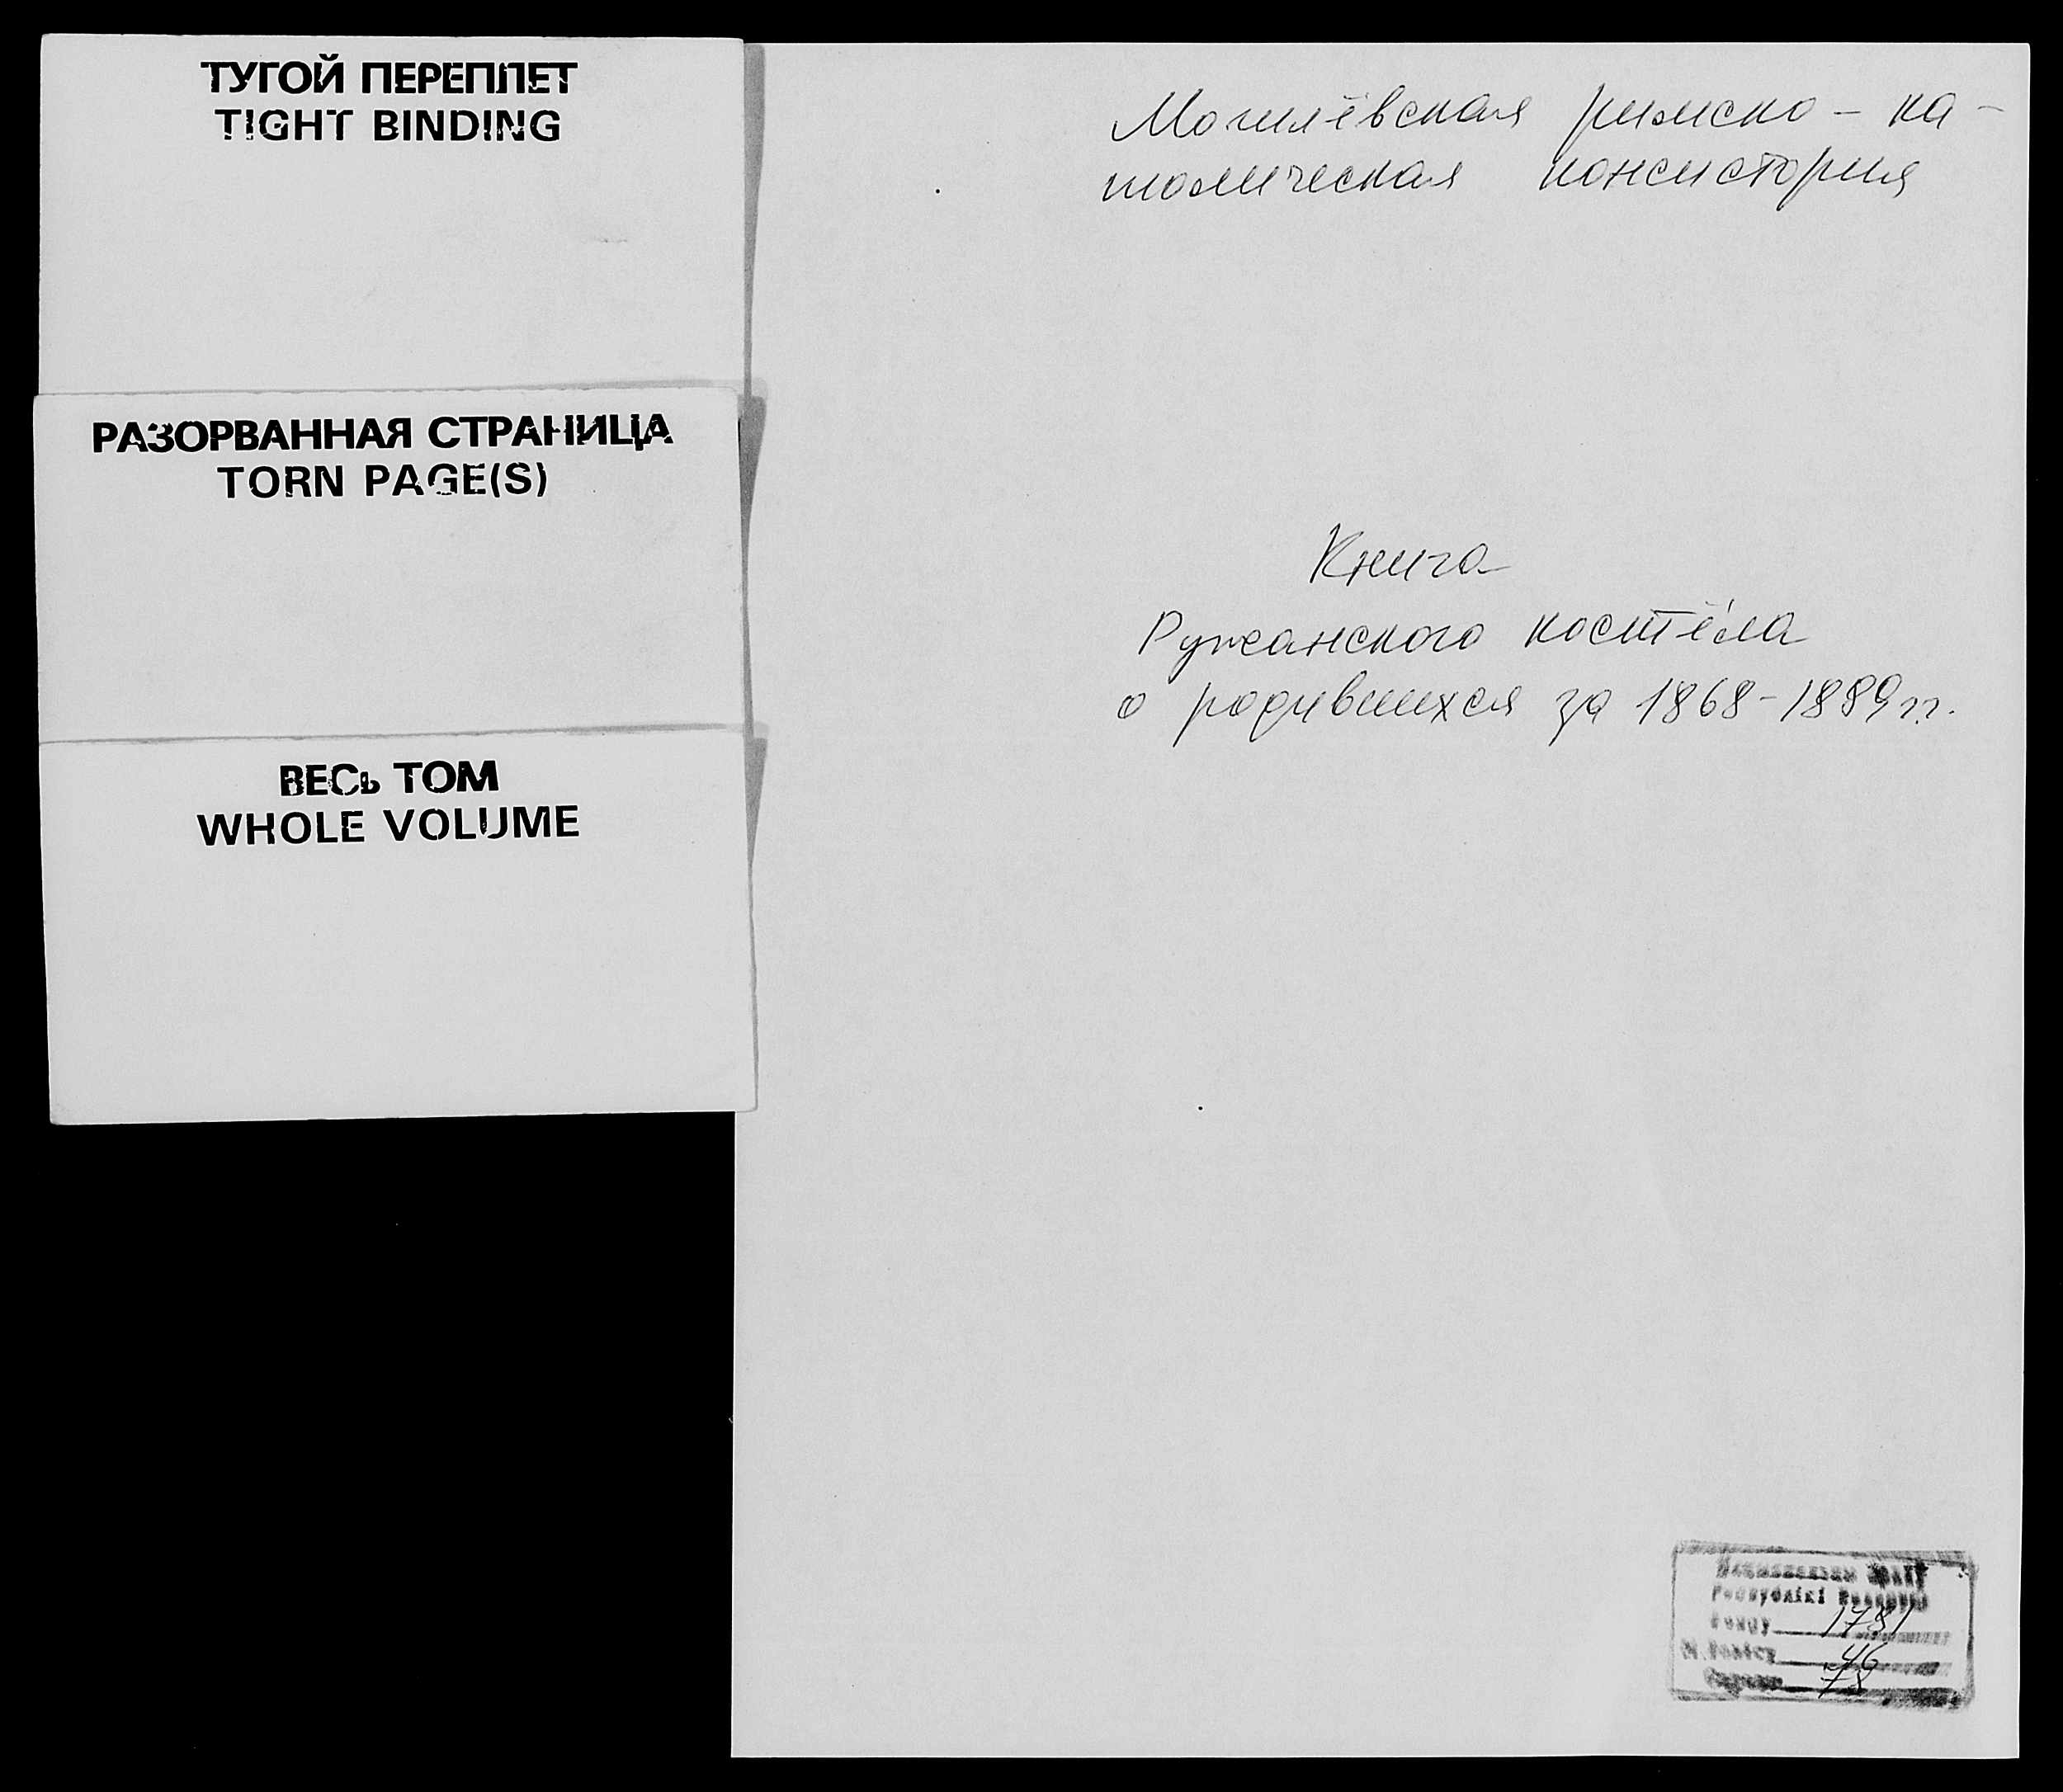 ТУГОЙ ПЕРЕПЛЕТ
TIGHT BINDING
РАЗОРВАННАЯ СТРАНИЦА
TORN PAGE(S)
ВЕСЬ ТОМ
WHOLE VOLUME
Могилёвская римско-ка-
толическая консистория
Книга
Ружанского костёла
о родившихся за 1868-1889 гг.
1781